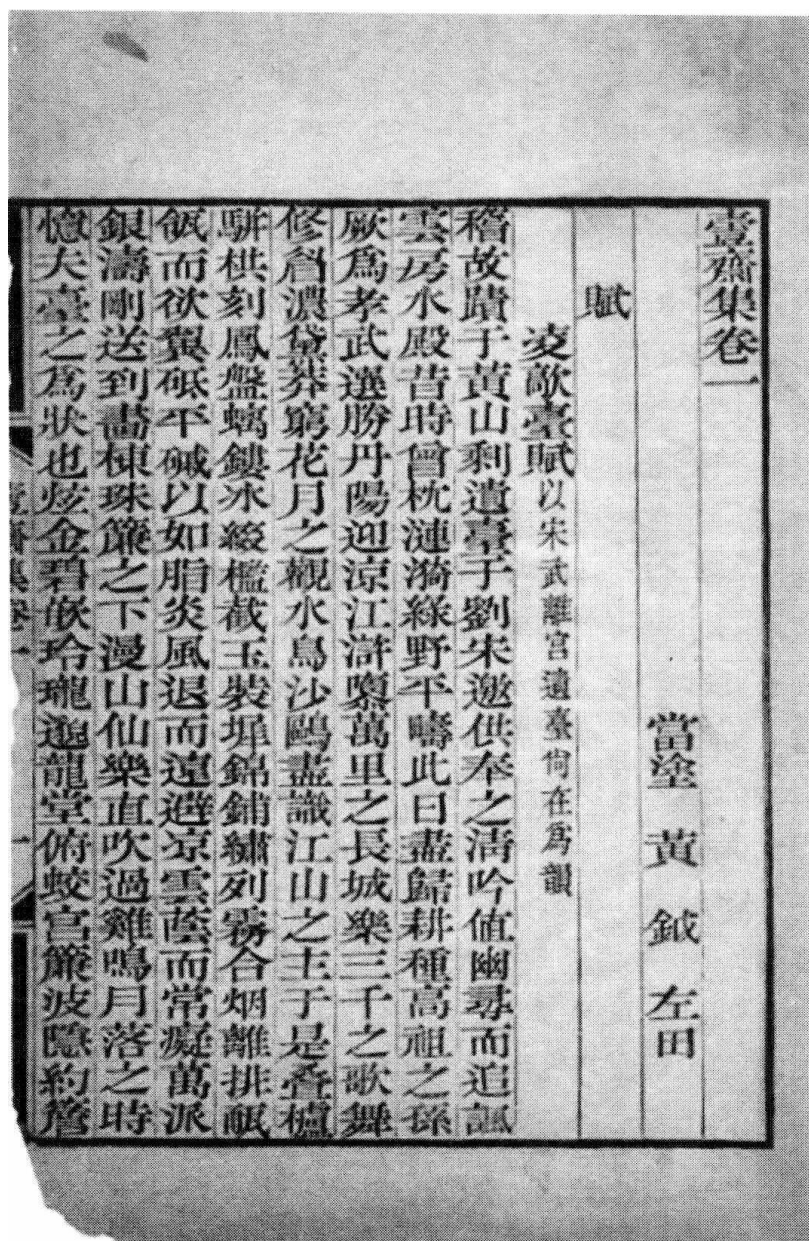 壹齋集卷一
當塗 黃 鉞 左田
賦
凌歊臺賦以宋武離宮遺臺尙在爲韻
稽故蹟于黃山剩遺臺于劉宋邀供奉之淸吟值幽尋而追諷
雲房水殿昔時曾枕漣漪綠野平疇此日盡歸耕種高祖之孫
厥爲孝武選勝丹陽迎涼江滸隳萬里之長城樂三千之歌舞
修眉濃黛莽窮花月之觀水鳥沙鷗盡識江山之主于是叠櫨
駢栱刻鳳盤螭鏤冰綴檻截玉裝墀錦鋪繡列霧合烟離排
瓴而欲翼砥平碱以如脂炎風退而遠避凉雲蔭而常癡萬派
銀濤剛送到畵棟珠簾之下漫山仙樂直吹過雞鳴月落之時
憶夫臺之爲狀也炫金碧嵌玲瓏迤龍堂俯蛟宮簾波隱約
壹齋集卷一
一